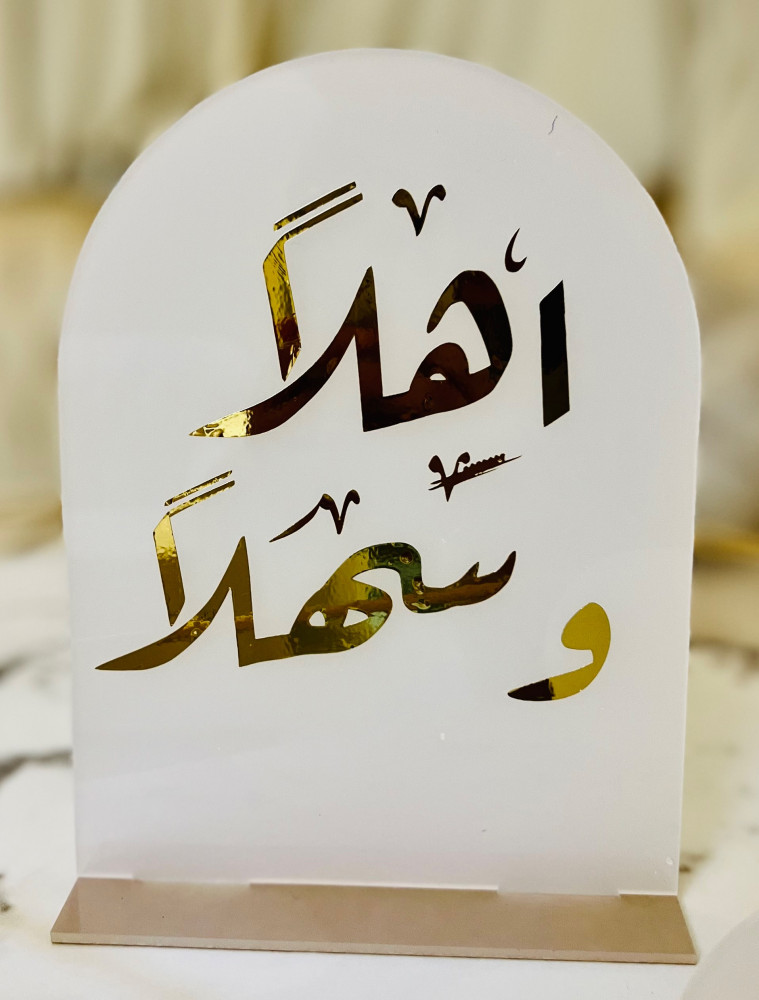 اهلاً
و سهلاً